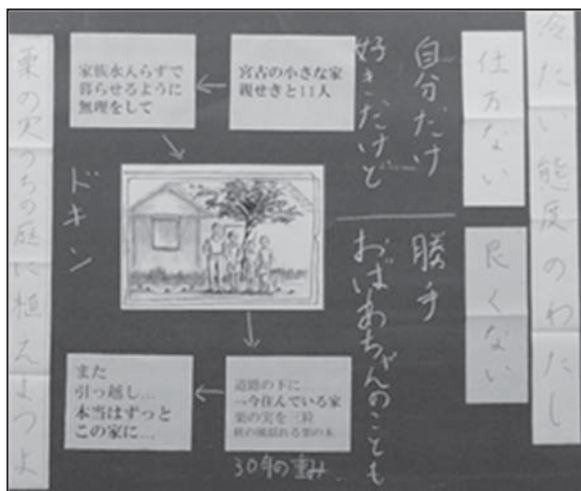 冷たい態度のわたし
仕方ない
良くない
自分だけ
勝手
好きだけど
おばあちゃんのことも
宮古の小さな家
親せきと11人
家族水入らずで
暮らせるように
無理をして
ドキン
道路の下に…
今住んでいる家
栗の実を三粒
秋の風揺れる栗の木
30年の重み
また
引っ越し…
本当はずっと
この家に…
栗の実うちの庭に植えまつよ